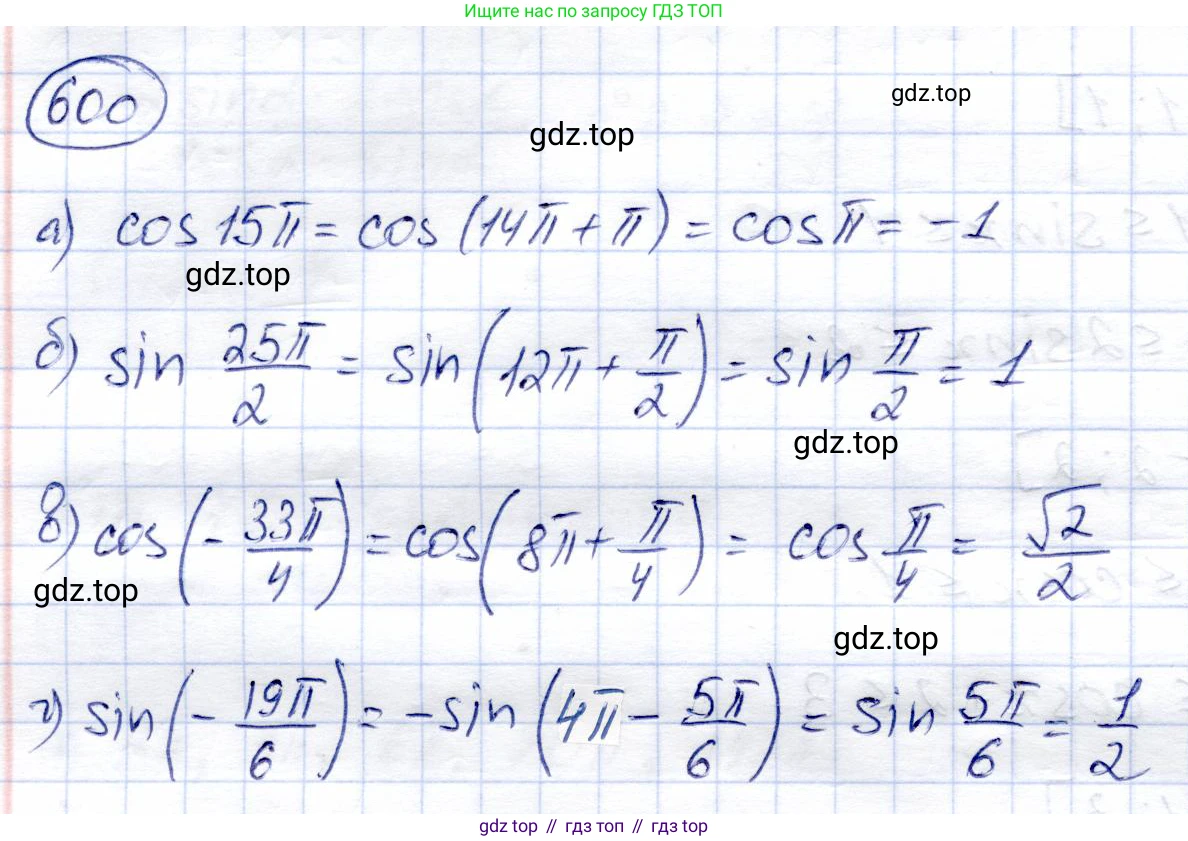 Ищите нас по запросу ГДЗ ТОП
600
gdz.top
gdz.top
а) cos 15π = cos (14π + π) = cos π = -1
gdz.top
б) sin 25π/2 = sin (12π + π/2) = sin π/2 = 1
gdz.top
в) cos (- 33π/4) = cos (8π + π/4) = cos π/4 = √2/2
gdz.top
gdz.top
г) sin (- 19π/6) = -sin (4π - 5π/6) = sin 5π/6 = 1/2
gdz top // гдз топ // гдз top